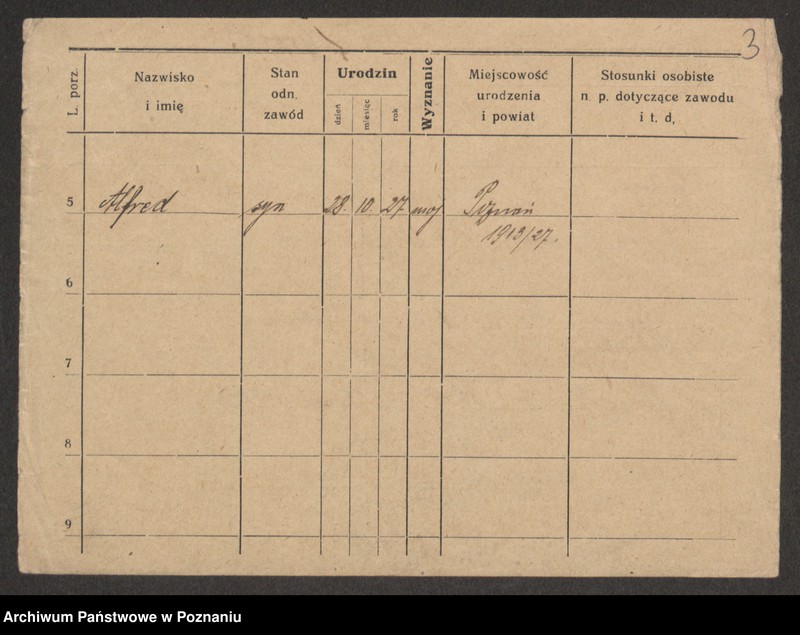 3
L. porz.
Nazwisko
i imię
Stan
odn.
zawód
Urodzin
dzień
miesięc
rok
Wyznanie
Miejscowość
urodzenia
i powiat
Stosunki osobiste
n. p. dotyczące zawodu
i t. d,
5 Alfred syn 28. 10. 27 moj Poznań
1913/27.
6
7
8
9
Archiwum Państwowe w Poznaniu